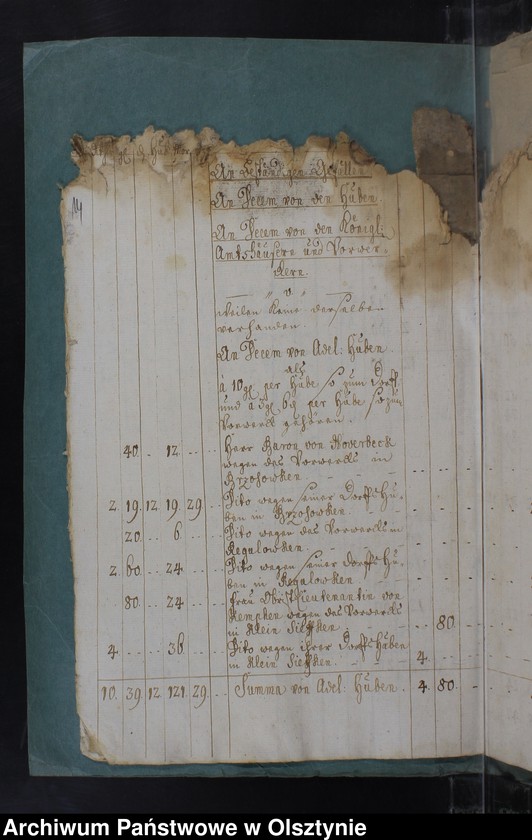 14
An beständigen Gefällen
An Decem von den Huben.
An Decem von den Königl:
Amtshäusern und Vorwer-
kern.
— " 0 " —
weilen keine derselben
vorhanden.
An Decem von Adel: Huben
als
à 10 per Hube so zum Dorff
und a 5 6 per Hube so zum
Vorwerck gehören.
40 .. 12 ... Herr Baron von Hoverbeck
wegen des Vorwercks in
Brzosowken. - - -
2. 19. 12. 19. 29. Dito wegen seiner Dorffs Hu-
ben in Brzosowken.
20 ... 6. .. Dito wegen des Vorwercks in
Regulowken.
2. 60. .. 24. .. Dito wegen seiner Dorffs Hu-
ben in Regulowken
80. ... 24 ... Frau Obrist Lieutenantin von
Kempken wegen des Vorwercks
in Klein .. 80.
4. ... 36. .. Dito wegen ihrer Dorffs Huben
in Klein 4.
10. 39. 12. 121. 29. Summa von Adel: Huben. 4. 80.
Archiwum Państwowe w Olsztynie